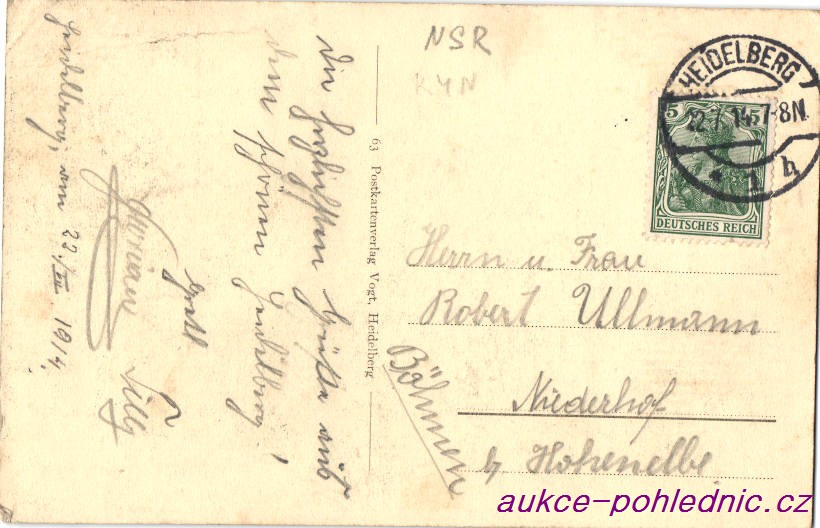 Heidelberg, am 22./VII 1914.
Die herzlichsten Grüße aus
dem schönen Heidelberg!
Gretl
Tilly
63 Postkartenverlag Vogt, Heidelberg
NSR
KYN
HEIDELBERG
22.7.14 7-8N
* 1 h
5 5
DEUTSCHES REICH
Herrn u. Frau
Robert Ullmann
Niederhof
b/ Hohenelbe
Böhmen
aukce-pohlednic.cz